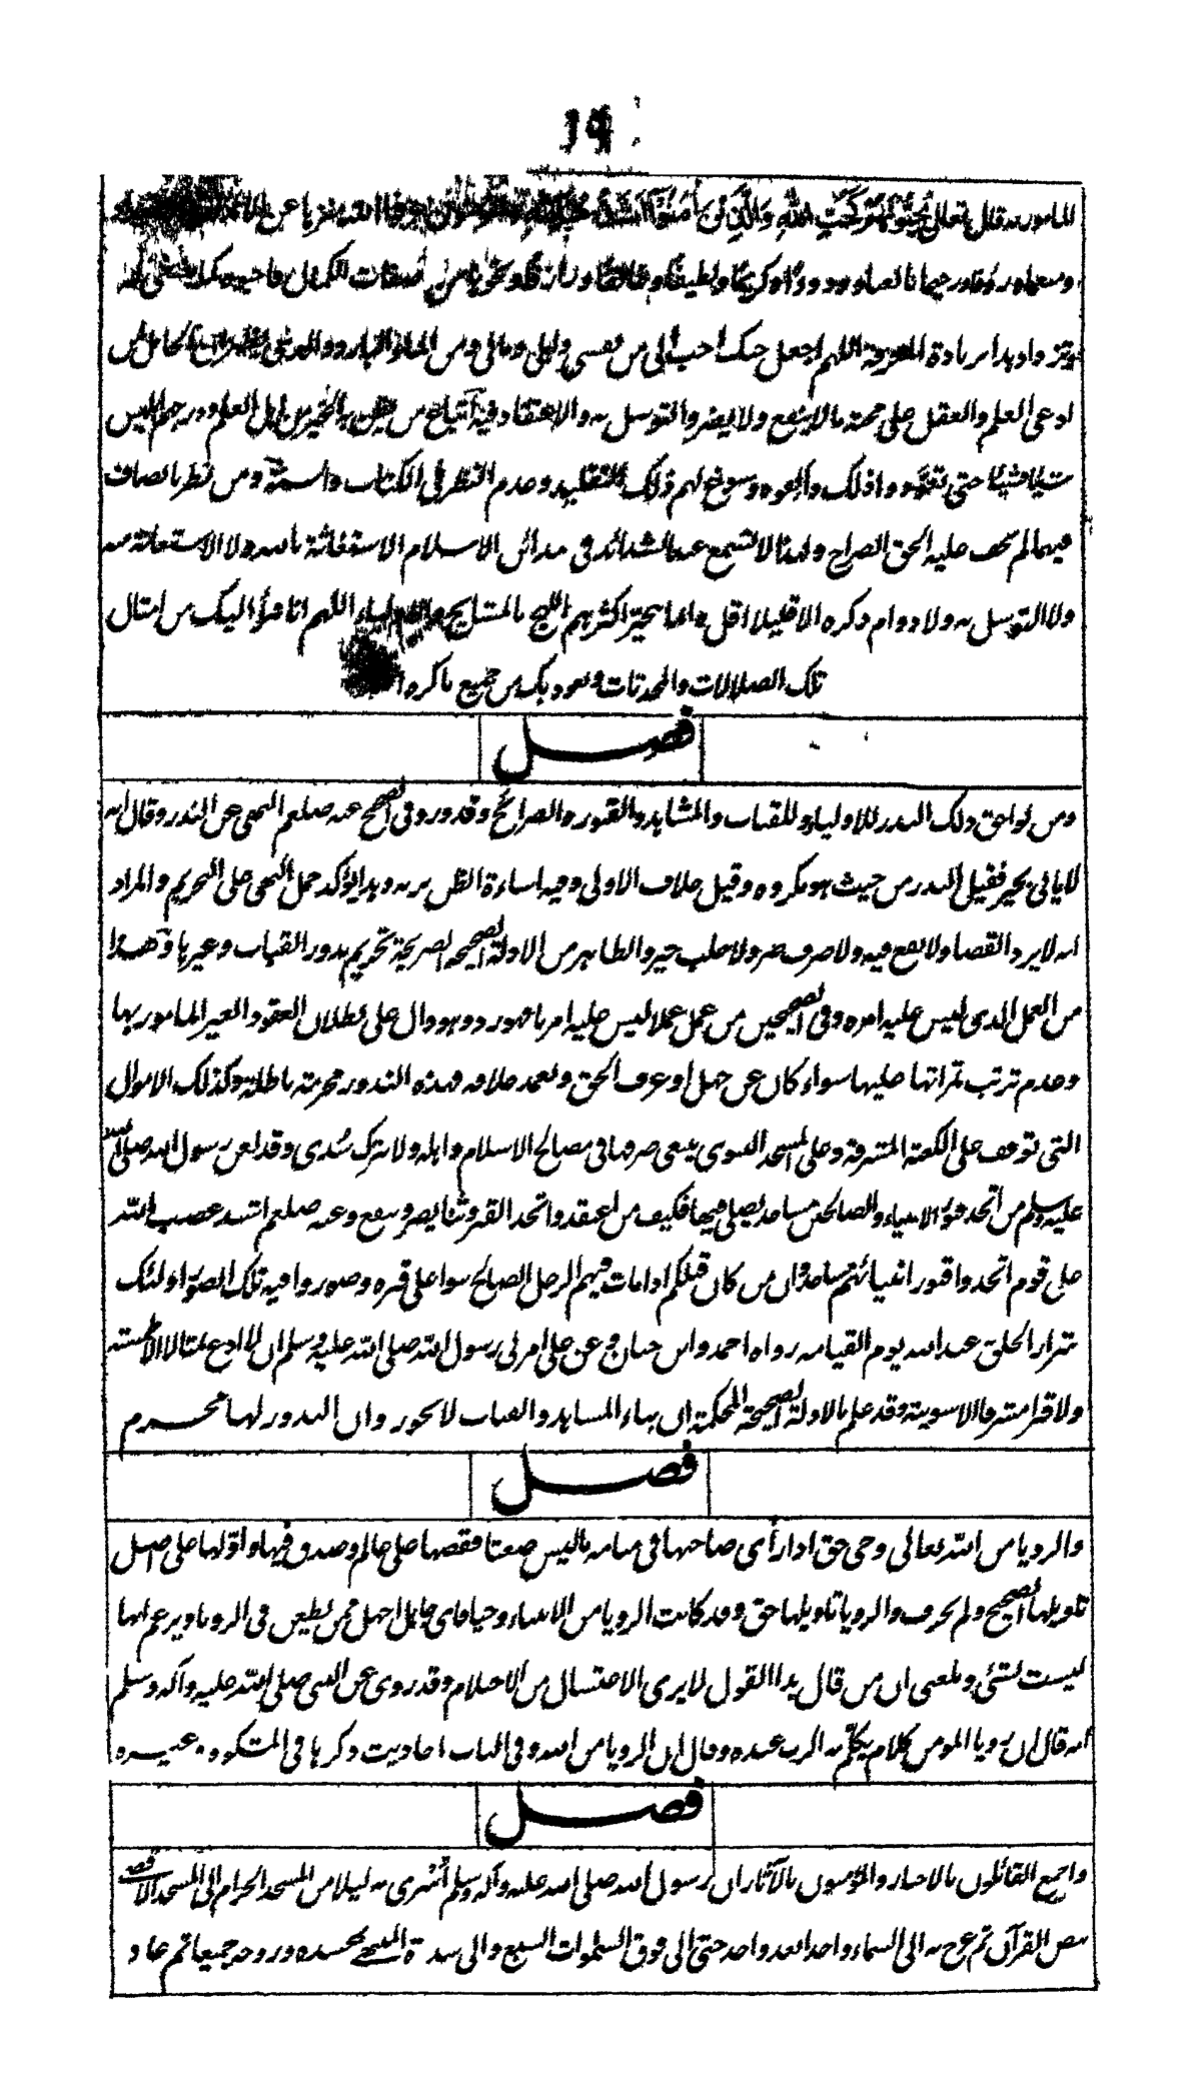 المامور به قال تعالى يُحِبُّونَهُمْ كَحُبِّ اللَّهِ وَالَّذِينَ آمَنُوا أَشَدُّ حُبًّا لِلَّهِ
ادعى العلم والعقل على محبة ما لا ينفع ولا يضر والتوسل به والاعتقاد فيه
شيئا فشيئا حتى تعودوا ذلك والفوه وسوغ لهم ذلك التقليد وعدم النظر في الكتاب والسنة ومن نظر بانصاف
فيهما لم يخف عليه الحق الصراح ولهذا لا تسمع عند الشدائد في مدائن الاسلام الاستغاثة بالله ولا الاستعانة به
ولا التوسل به ولا دوام ذكره الا قليلا اقل اللهم انا نبرأ اليك من امثال
تلك الضلالات والمحدثات ونعوذ بك من جميع ما كره الله
فصل
ومن لواحق ذلك النذر للاولياء وللقباب والمشاهد والقبور والضرائح وقد ورد في الصحيح عنه صلعم النهي عن النذر وقال انه
لا ياتي بخير فقيل النذر من حيث هو مكروه وقيل خلاف الاولى وفيه اساءة الظن بربه وهذا يؤكد حمل النهي على التحريم والمراد
انه لا يرد القضا ولا نفع فيه ولا صرف ضر ولا جلب خير والظاهر من الادلة الصحيحة الصريحة تحريم نذور القباب وغيرها وهذا
من العمل الذي ليس عليه امره وفي الصحيحين من عمل عملا ليس عليه امرنا فهو رد وهو دال على بطلان العقود الغير المامور بها
وعدم ترتب ثمراتها عليها سواء كان عن جهل او عرف الحق وتعمد خلافه فهذه النذور محرمة باطلة وكذلك الاموال
التي توقف على الكعبة المشرفة وعلى المسجد النبوي ينبغي صرفها في مصالح الاسلام واهله ولا تترك سُدى وقد لعن رسول الله صلى الله
عليه وسلم من اتخذ قبور الانبياء والصالحين مساجد يصلي فيها فكيف من اعتقد واتخذ القبر وثنا يضر وينفع وعنه صلعم اشتد غضب الله
على قوم اتخذوا قبور انبيائهم مساجد وان من كان قبلكم اذا مات فيهم الرجل الصالح بنوا على قبره وصوروا فيه تلك الصور اولئك
شرار الخلق عند الله يوم القيامة رواه احمد وابن حبان وعن علي امرني رسول الله صلى الله عليه وسلم ان لا ادع تمثالا الا طمسته
ولا قبرا مشرفا الا سويته وقد علم بالادلة الصحيحة المحكمة ان بناء المشاهد والقباب لا يجوز وان النذور لها محرم
فصل
والرويا من الله تعالى وحي حق اذا رأى صاحبها في منامه ما ليس ضغثا فقصها على عالم وصدق فيها واوّلها على اصل
تاويلها الصحيح ولم يحرف والرويا تاويلها حق وقد كانت الرويا من الانبياء وحيا فاي جاهل اجهل ممن يطعن في الرويا ويزعم انها
ليست بشئ وبلغني ان من قال بهذا القول لا يرى الاغتسال من الاحتلام وقد روي عن النبي صلى الله عليه وآله وسلم
انه قال ان رويا المومن كلام يكلم به الرب عبده وقال ان الرويا من الله وفي الباب احاديث ذكرها في المشكوة وغيره
فصل
واجمع القائلون بالاخبار والمؤمنون بالآثار ان رسول الله صلى الله عليه وآله وسلم أسرى به ليلا من المسجد الحرام الى المسجد الاقصى
بنص القرآن ثم عرج به الى السماء واحدا بعد واحد حتى الى فوق السموات السبع والى سدرة المنتهى بجسده وروحه جميعا ثم عاد